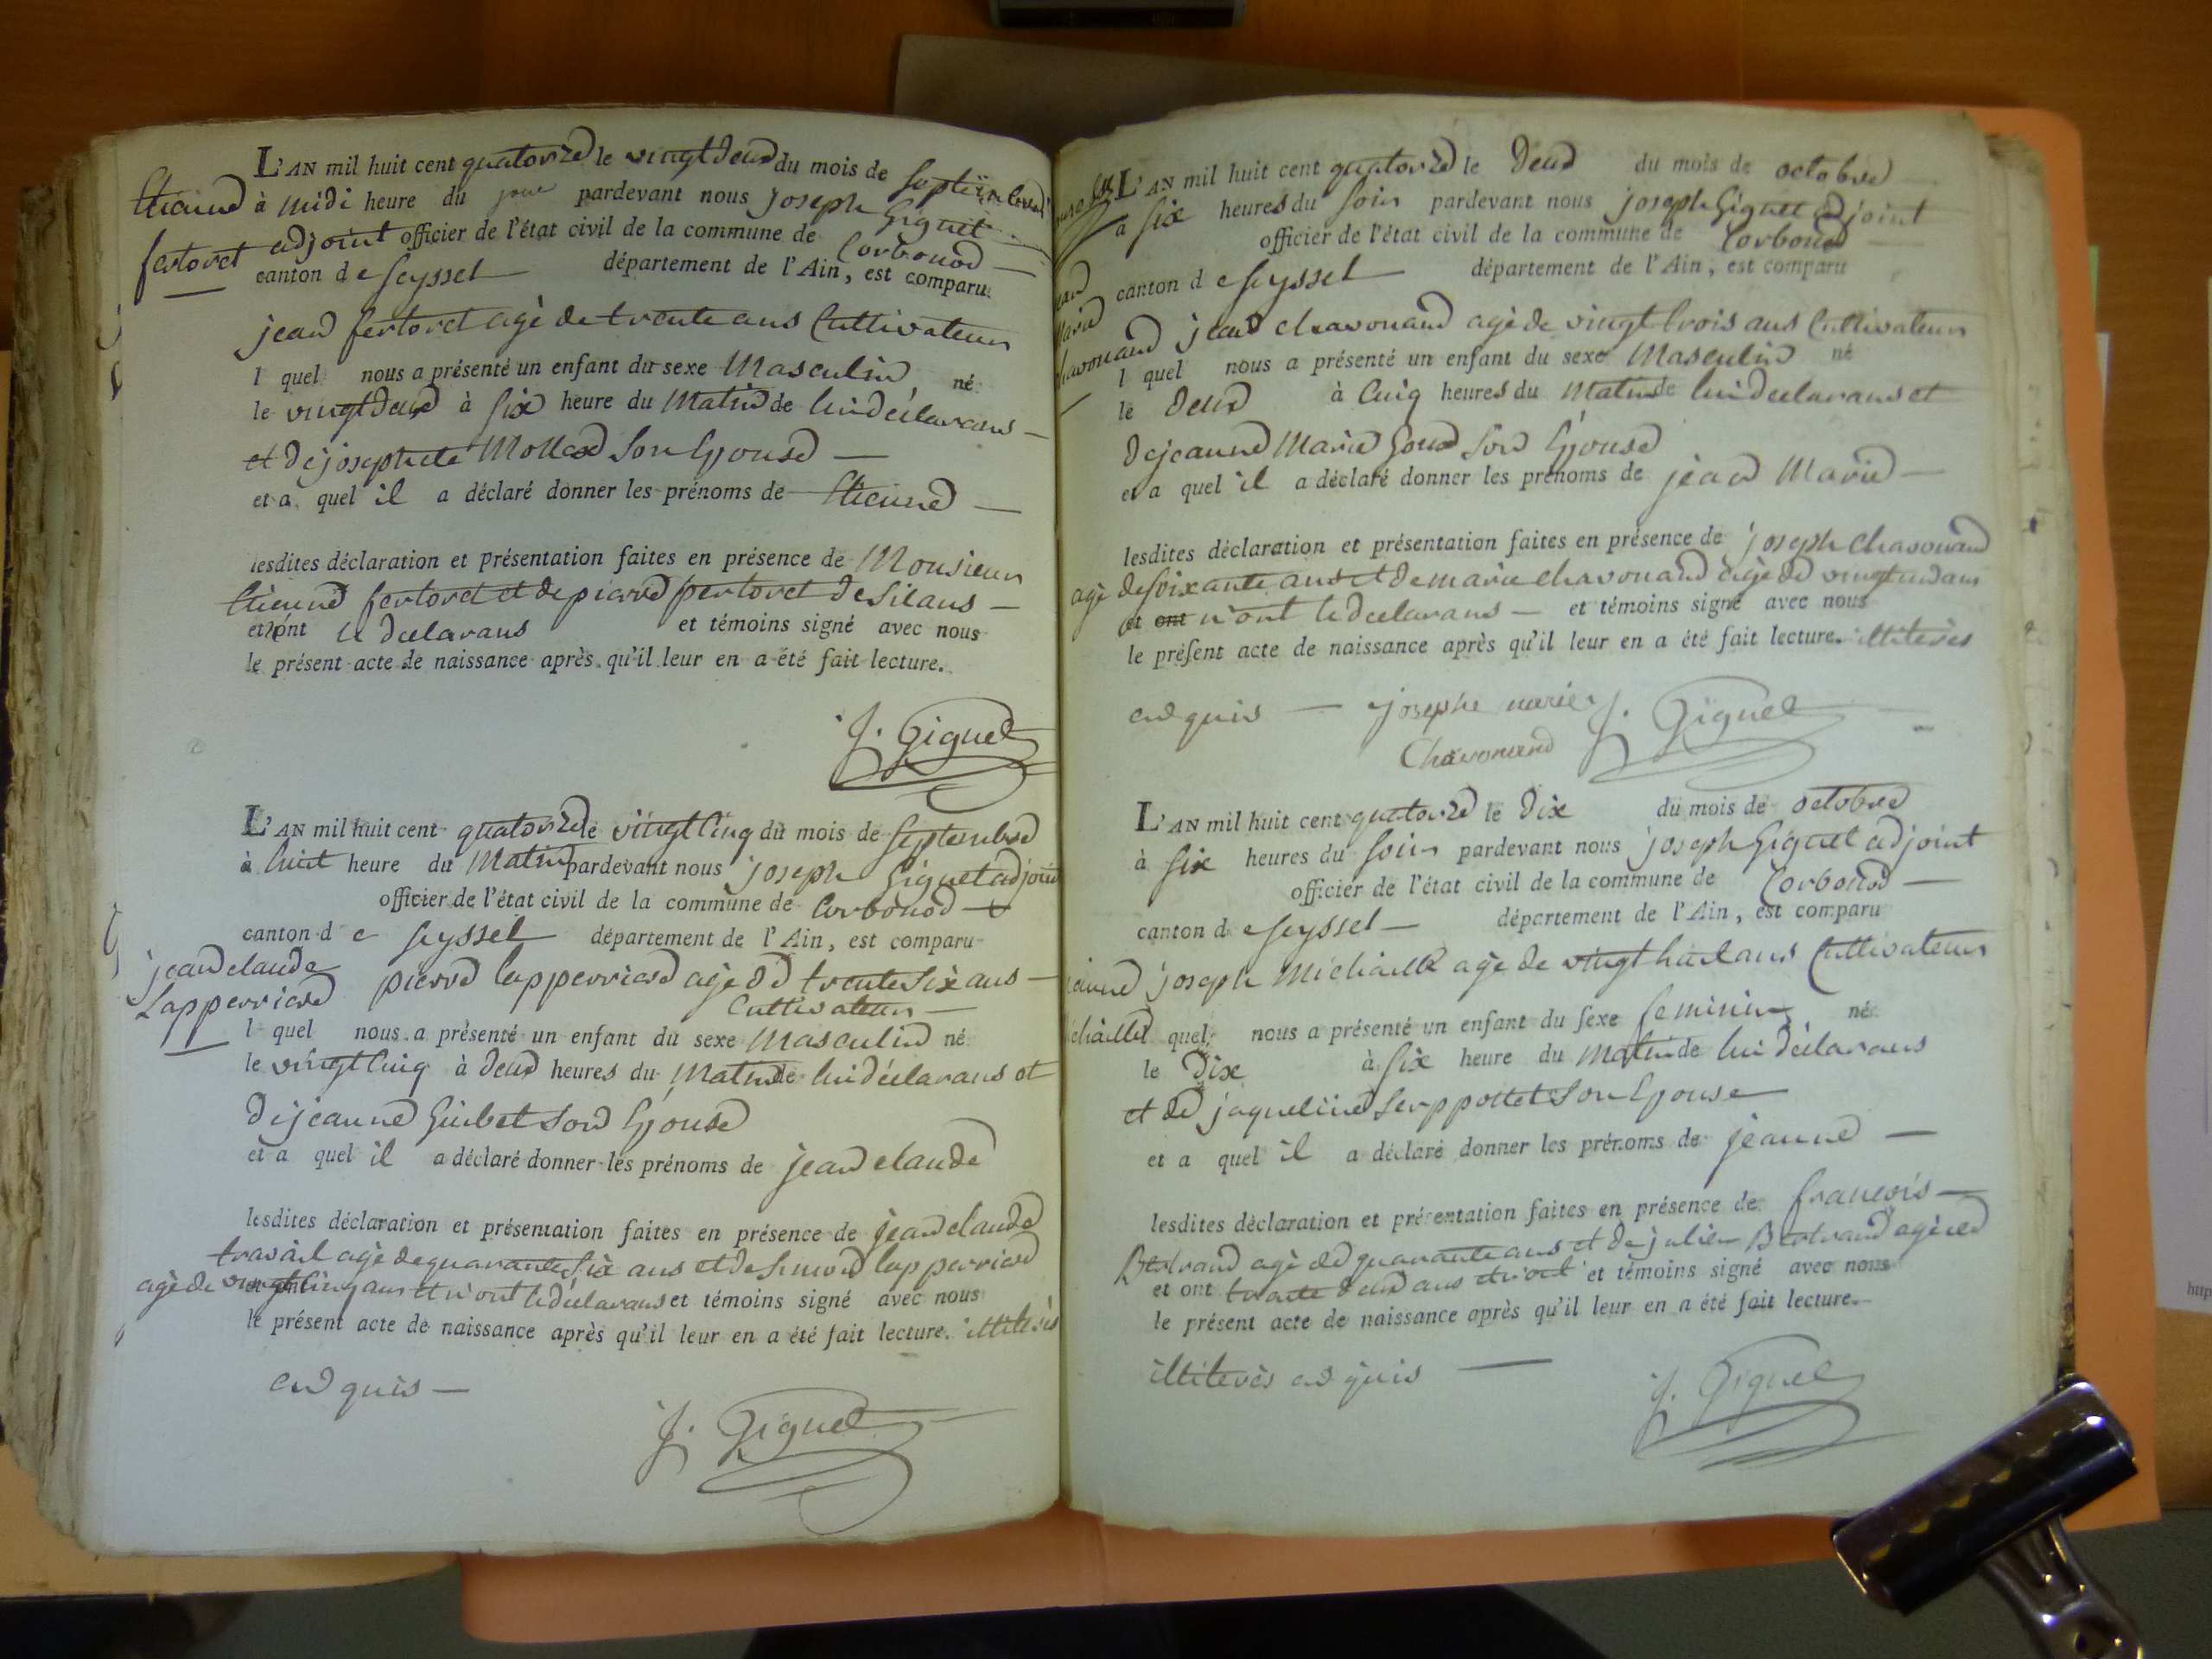 L'AN mil huit cent quatorze le vingt deux du mois de septembre
Etienne à midi heure du jour pardevant nous joseph Giguet
fertoret adjoint officier de l'état civil de la commune de Corbonod
canton de seyssel département de l'Ain, est comparu
jean fertoret agé de trente ans Cultivateur
l quel nous a présenté un enfant du sexe Masculin né
le vingt deux à six heure du Matin de lui déclarans
et de josephete Mollex son Epouse
et a quel il a déclaré donner les prénoms de Etienne
lesdites déclaration et présentation faites en présence de Monsieur
Etienne fertoret et de pierre fertoret de silans
et n'ont le declarans et témoins signé avec nous
le présent acte de naissance après qu'il leur en a été fait lecture.
J. Giguet
L'AN mil huit cent quatorze le vingt Cinq du mois de septembre
à huit heure du Matin pardevant nous joseph Giguet adjoint
officier de l'état civil de la commune de Corbonod
canton de seyssel département de l'Ain, est comparu
jean claude
Lapperriere pierre lapperriere agé de trente six ans
Cultivateur
l quel nous a présenté un enfant du sexe Masculin né
le vingt Cinq à deux heures du Matin de lui déclarans et
de jeanne Guibet son Epouse
et a quel il a déclaré donner les prénoms de jean claude
lesdites déclaration et présentation faites en présence de jean claude
travail agé de quarante six ans et de simon lapperriere
agé de vingt cinq ans et n'ont le déclarans et témoins signé avec nous
le présent acte de naissance après qu'il leur en a été fait lecture. illiterés
en quis
J. Giguet
L'AN mil huit cent quatorze le deux du mois de octobre
à six heures du soir pardevant nous joseph Giguet adjoint
officier de l'état civil de la commune de Corbonod
canton de seyssel département de l'Ain, est comparu
jean chavouand agé de vingt trois ans Cultivateur
l quel nous a présenté un enfant du sexe Masculin né
le deux à Cinq heures du Matin de lui déclarans et
de jeanne Marie Goux son Epouse
et a quel il a déclaré donner les prénoms de jean Marie
lesdites déclaration et présentation faites en présence de joseph chavouand
agé de soixante ans et de marie chavouand agé de vingt un ans
et ont n'ont le declarans et témoins signé avec nous
le présent acte de naissance après qu'il leur en a été fait lecture. illiterés
en quis josephe marie J. Giguet
Chavouand
L'AN mil huit cent quatorze le dix du mois de octobre
à six heures du soir pardevant nous joseph Giguet adjoint
officier de l'état civil de la commune de Corbonod
canton de seyssel département de l'Ain, est comparu
joseph Michaille agé de vingt huit ans Cultivateur
quel nous a présenté un enfant du sexe feminin né
le dix à six heure du matin de lui déclarans
et de jaqueline Serppottet son Epouse
et a quel il a déclaré donner les prénoms de jeanne
lesdites déclaration et présentation faites en présence de françois
Bertrand agé de quarante ans et de julien Bertrand agé de
et ont trante deux ans et n'ont et témoins signé avec nous
le présent acte de naissance après qu'il leur en a été fait lecture.
illiterés en quis
J. Giguet